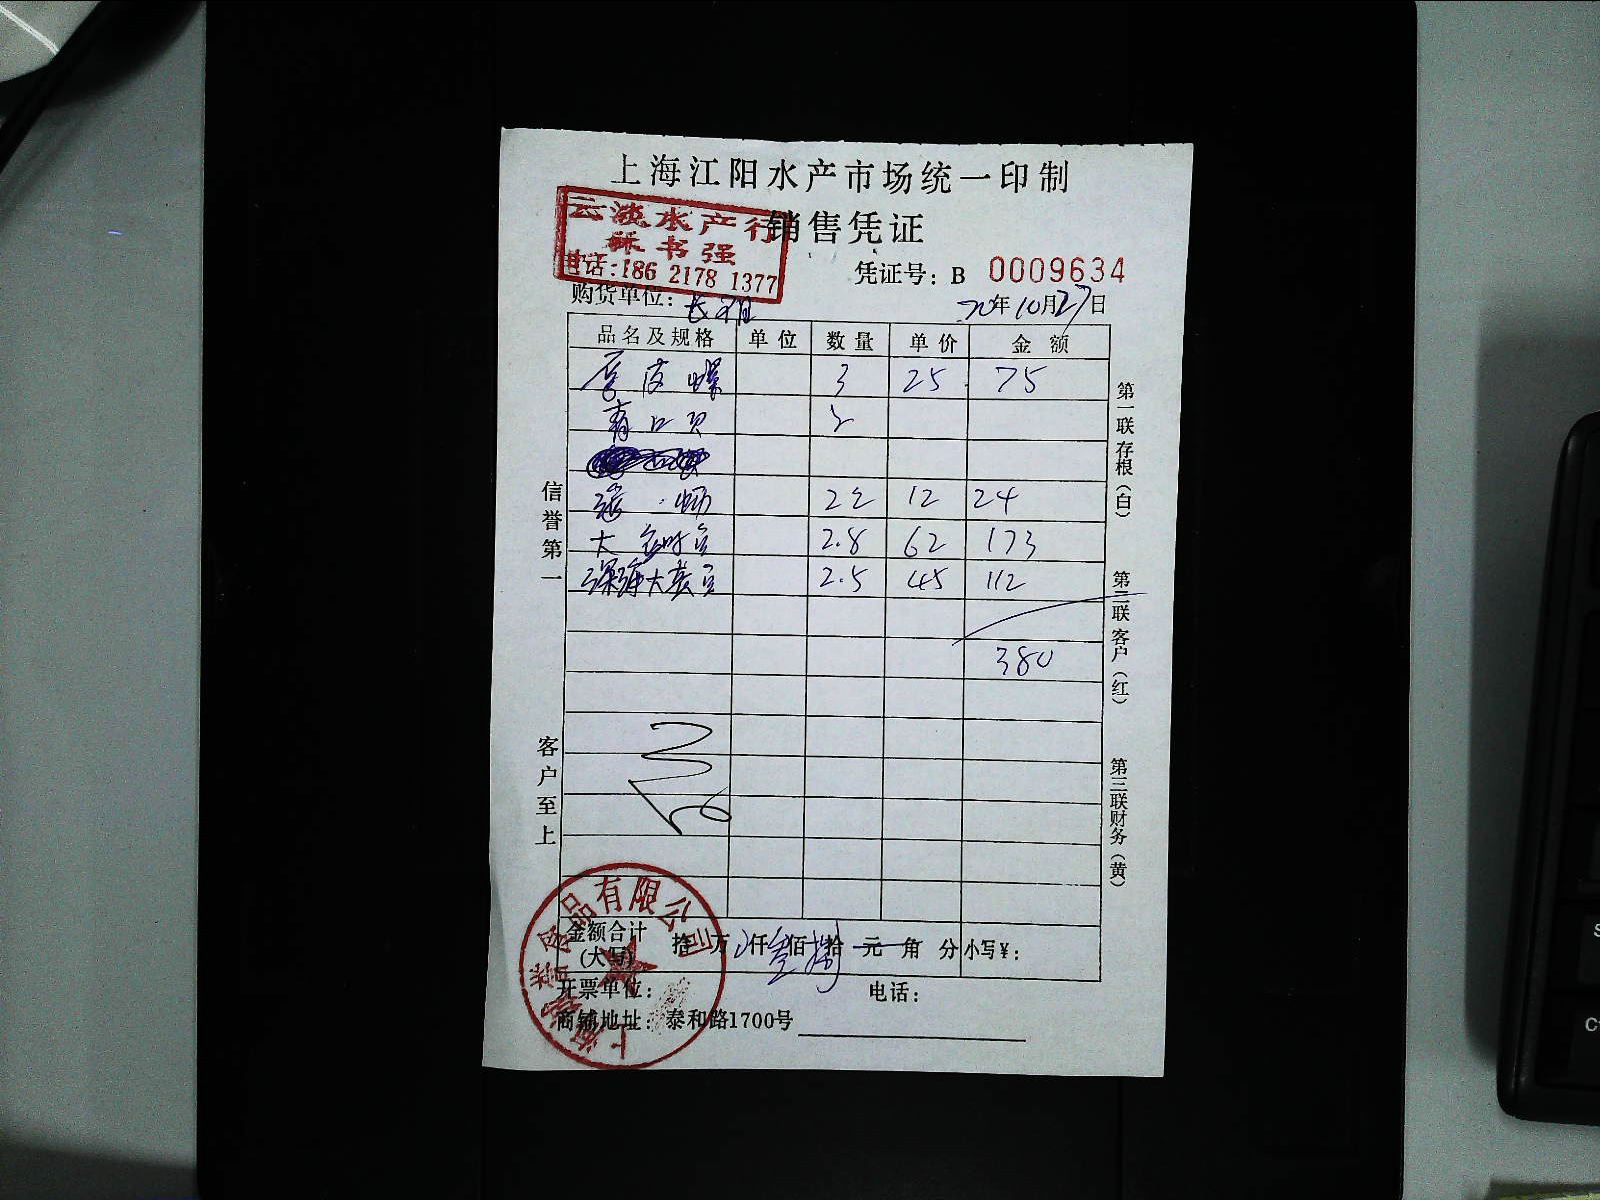 上海江阳水产市场统一印制
云淡水产行
销售凭证
书强
电话:186 2178 1377
凭证号: B 0009634
购货单位: 长
20年10月27日
品名及规格 单位 数量 单价 金额
厚皮螺 3 25 75
青口贝 2
22 12 24
大 2.8 62 173
深海大黄 2.5 45 112
380
信誉第一
客户至上
第一联存根(白)
第二联客户(红)
第三联财务(黄)
金额合计(大写) 拾 万 仟 佰 拾 元 角 分 小写¥:
开票单位: 电话:
商铺地址: 泰和路1700号
上海 食品有限公司